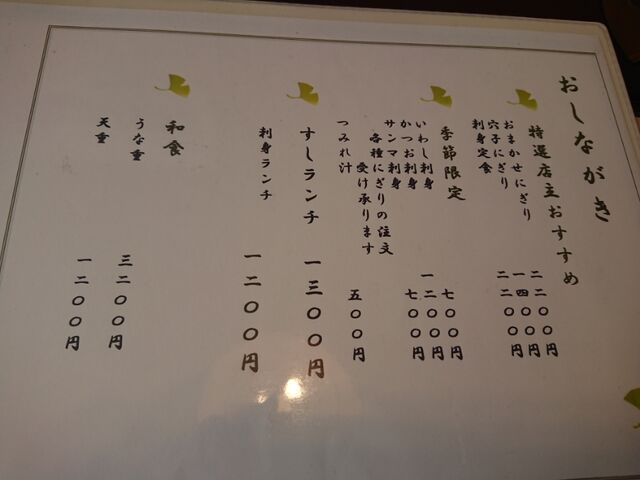 おしながき
特選店主おすすめ
おまかせにぎり 二二〇〇円
穴子にぎり 一四〇〇円
刺身定食 二二〇〇円
季節限定
いわし刺身 七〇〇円
かつお刺身 一二〇〇円
サンマ刺身 七〇〇円
各種にぎりの注文
受け承ります
つみれ汁 五〇〇円
すしランチ 一三〇〇円
刺身ランチ 一二〇〇円
和食
うな重 三二〇〇円
天重 一二〇〇円